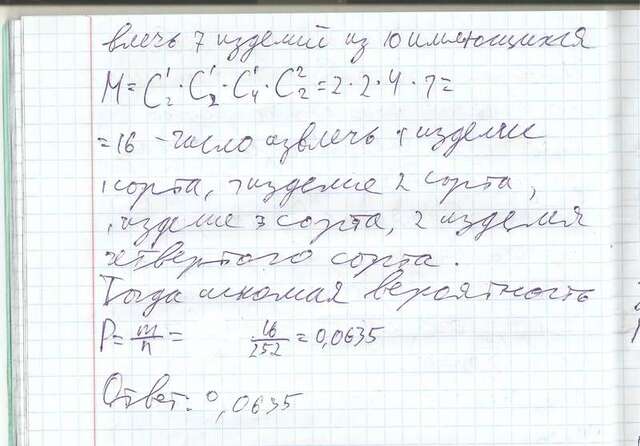 влечь 7 изделий из 10 имеющихся
M = C₂¹ · C₂¹ · C₄¹ · C₂² = 2 · 2 · 4 · 1 =
= 16 – число извлечь 1 изделие
1 сорта, 1 изделие 2 сорта,
1 изделие 3 сорта, 2 изделия
четвертого сорта.
Тогда искомая вероятность
P = m/n = 16/252 = 0,0635
Ответ: 0,0635